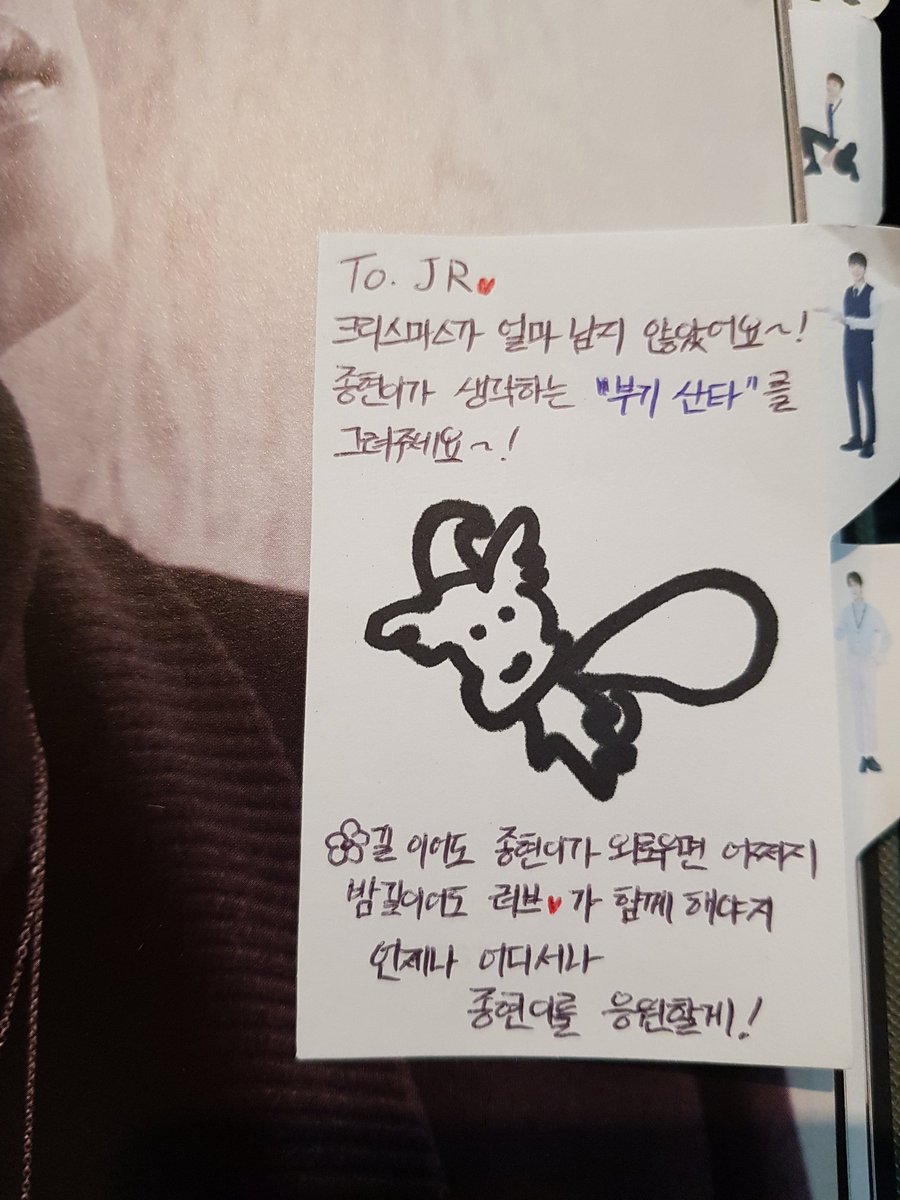 To. JR♥
크리스마스가 얼마 남지 않았어요~!
종현이가 생각하는 "부기 산타"를
그려주세요~!
길 이어도 종현이가 외로우면 어쩌지
밤길이어도 러브♥가 함께 해야지
언제나 어디서나
종현이를 응원할게!